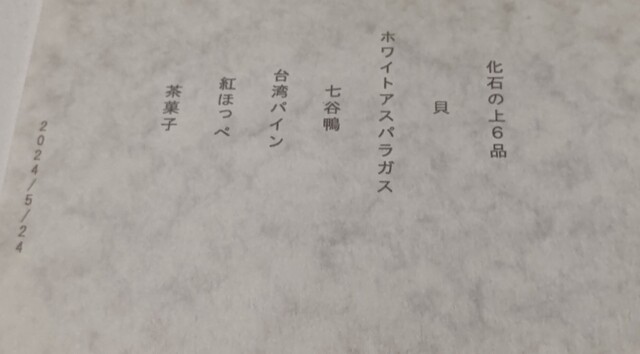 化石の上6品
貝
ホワイトアスパラガス
七谷鴨
台湾パイン
紅ほっぺ
茶菓子
2024/5/24